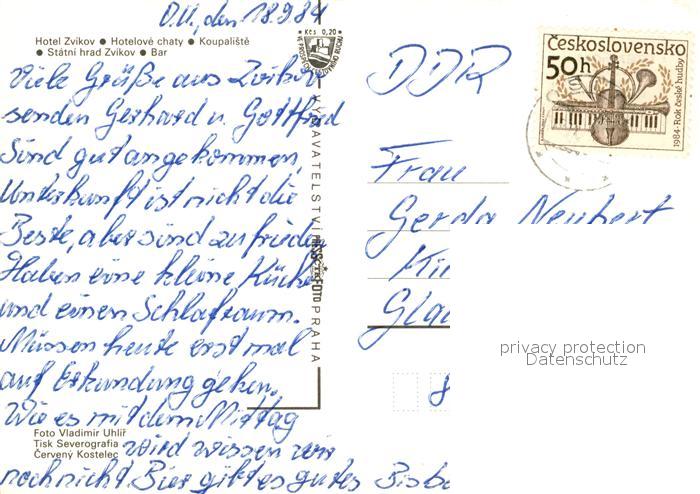 O.U., den 18.9.84
Hotel Zvíkov • Hotelové chaty • Koupaliště
• Státní hrad Zvíkov • Bar
Viele Grüße aus Zvikov
senden Gerhard u. Gottfried
Sind gut angekommen,
Unterkunft ist nicht die
Beste, aber sind zufrieden
Haben eine kleine Küche
und einen Schlafraum.
Müssen heute erst mal
auf Erkundung gehen.
Wie es mit dem Mittag
wird wissen wir
noch nicht. Bier gibt es gutes
Foto Vladimír Uhlíř
Tisk Severografia
Červený Kostelec
Kčs 0,20
VYDAVATELSTVÍ PRESSFOTO PRAHA
Československo
50h
1984 · Rok české hudby
DDR
Frau
Gerda Neubert
privacy protection
Datenschutz